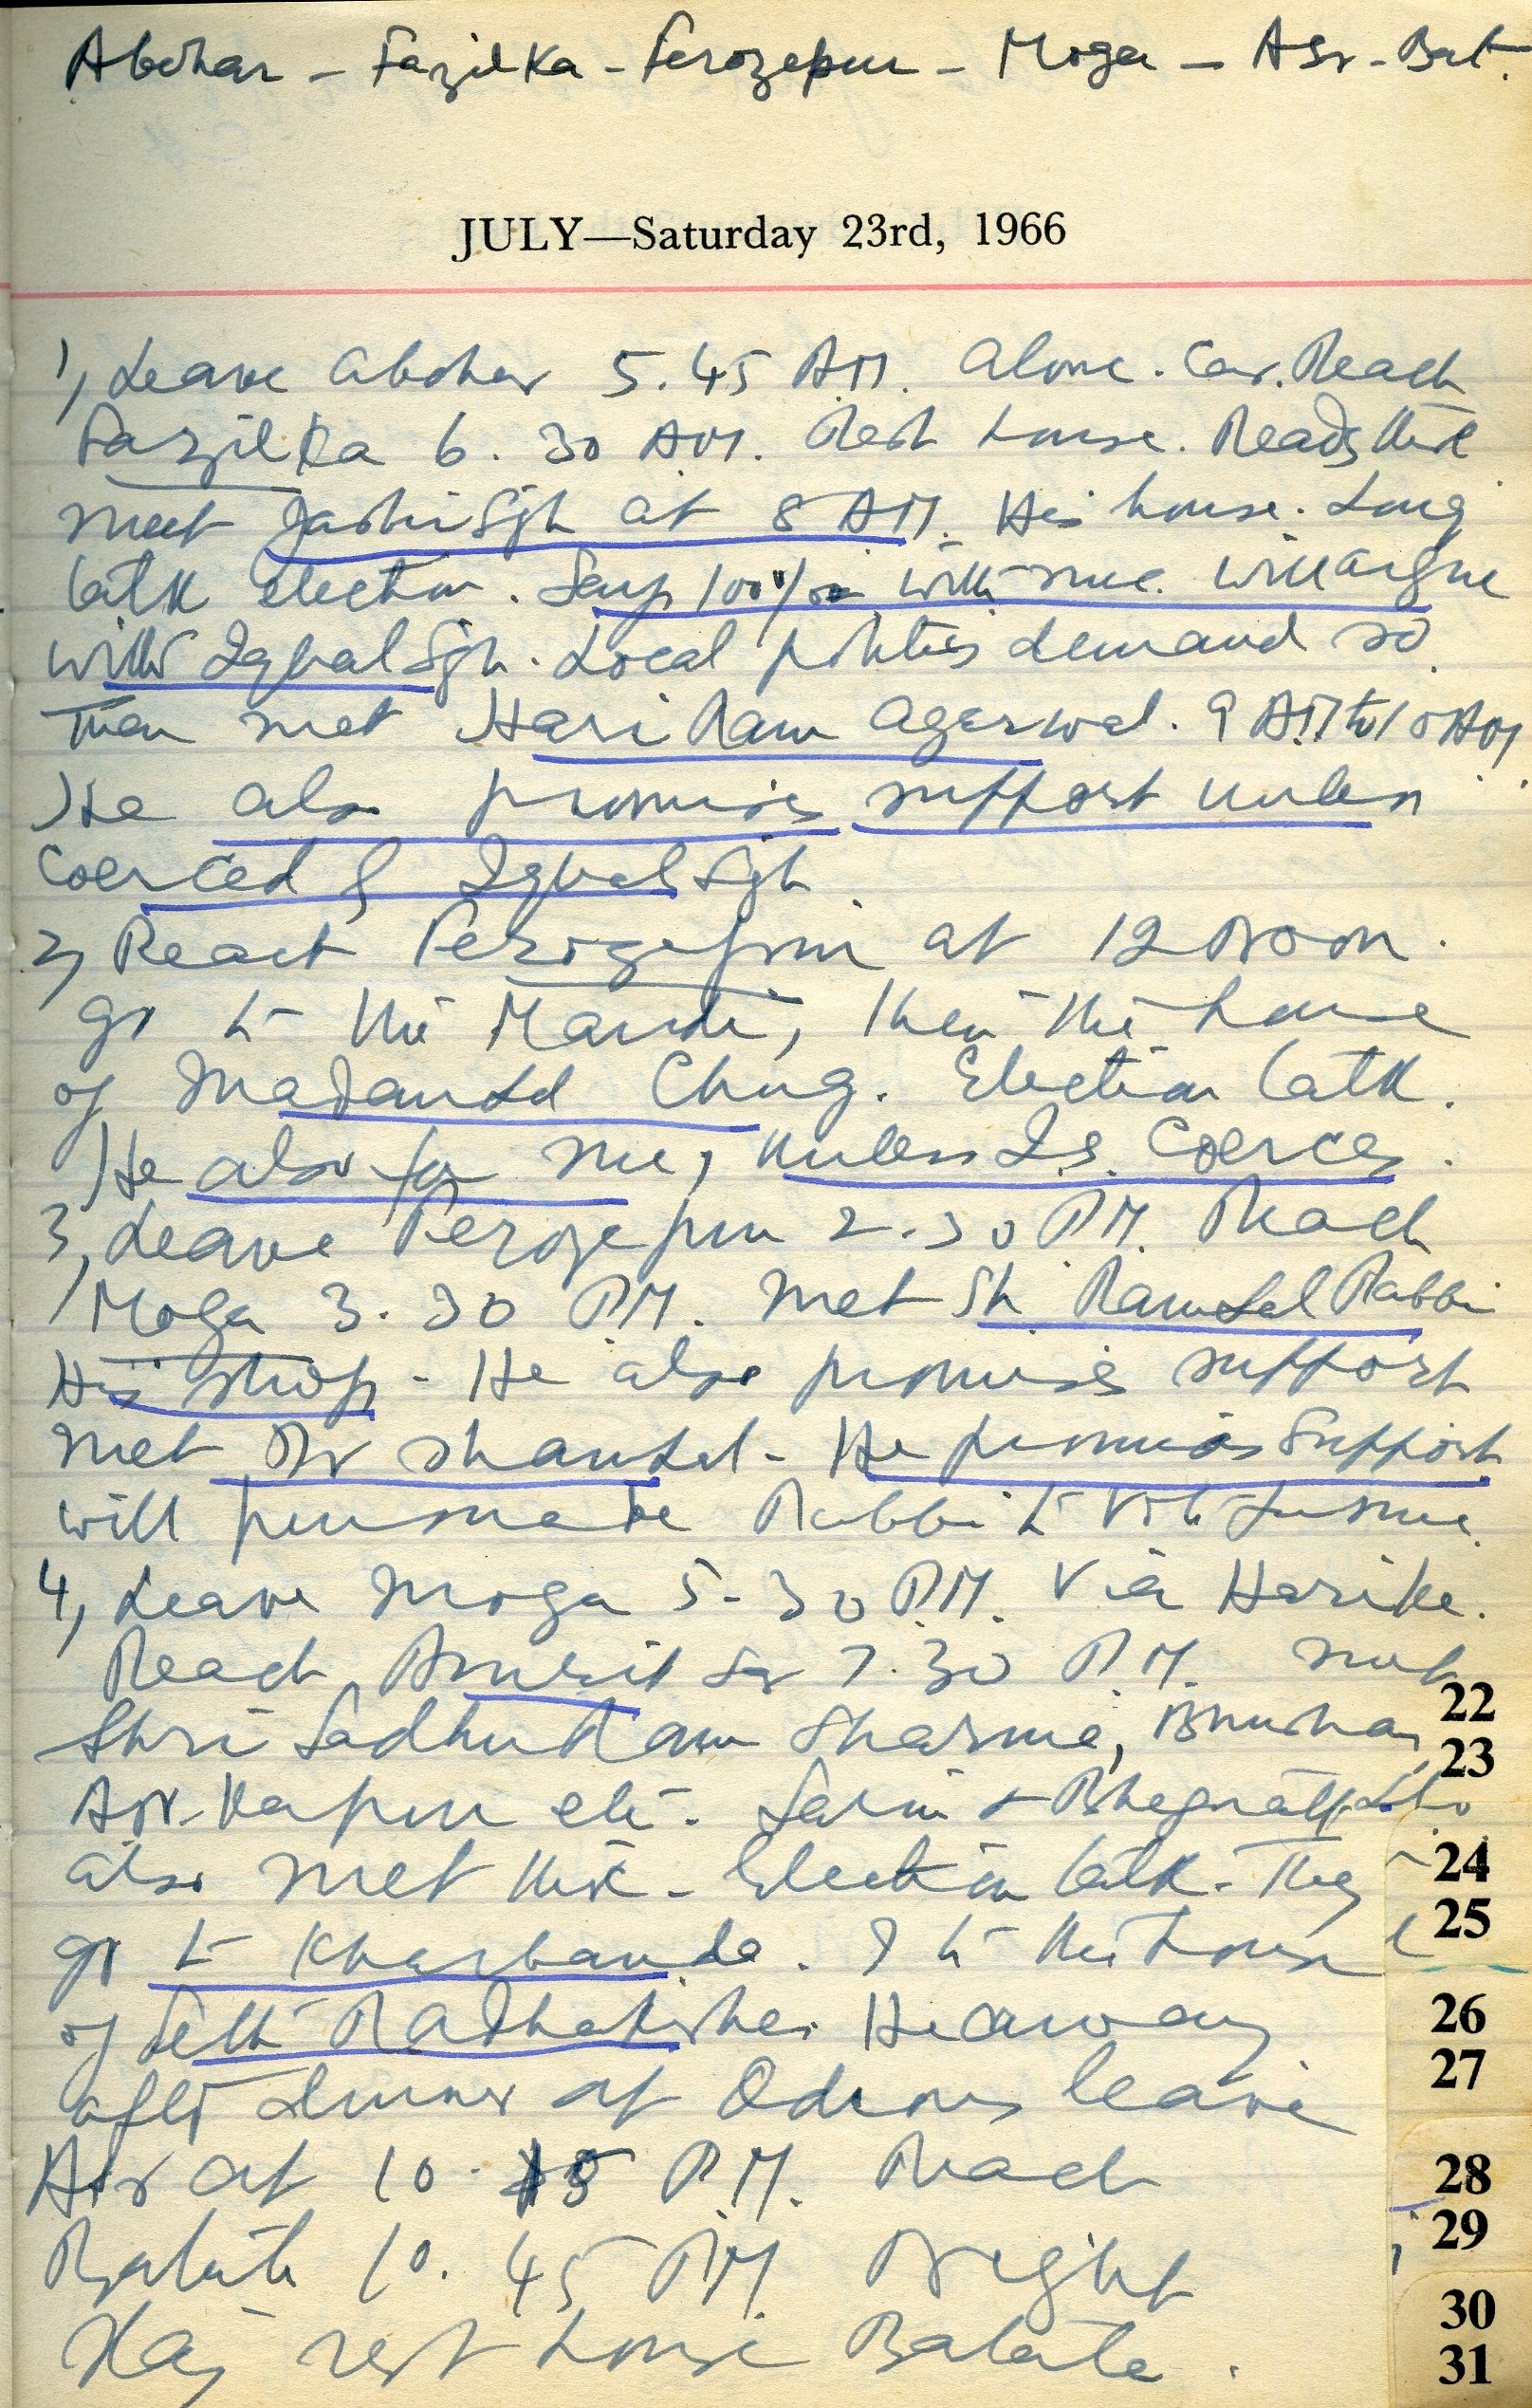 Abohar - Fazilka - Ferozepur - Moga - Asr - Bat.
JULY—Saturday 23rd, 1966
1, Leave Abohar 5.45 AM. Alone. Car. Reach
Fazilka 6.30 AM. Rest house. Ready there
meet Sgh at 8 AM. His house. Long
talk election. Says 100% with me. Will argue
with Iqbal Sgh. Local politics demand so.
Then met Hari Ram Agarwal. 9 AM to 10 AM
He also promises support unless
coerced by Iqbal Sgh
2, Reach Ferozepur at 12 Noon.
go to the Mandi, then the house
of Madan Lal Chug. Election talk.
He also for me, unless I.S. coerces.
3, Leave Ferozepur 2.30 PM. Reach
Moga 3.30 PM. Met Sh Ram Lal Rabbi
His shop - He also promises support
Met Dr Sham Lal - He promises support
will persuade Rabbi to vote for me.
4, Leave Moga 5-30 PM. Via Harike.
Reach Amritsar 7.30 PM met
Shri Sadhu Ram Sharma, Bhushan,
Kapur etc. & Bhagwati
also met there - Election talk - They
go to Kharbanda. I to the house
of Seth Radhakishen. He away
after dinner at Odeons leave
Asr at 10.15 PM. Reach
Batala 10.45 PM Night
stay rest house Batala.
22
23
24
25
26
27
28
29
30
31